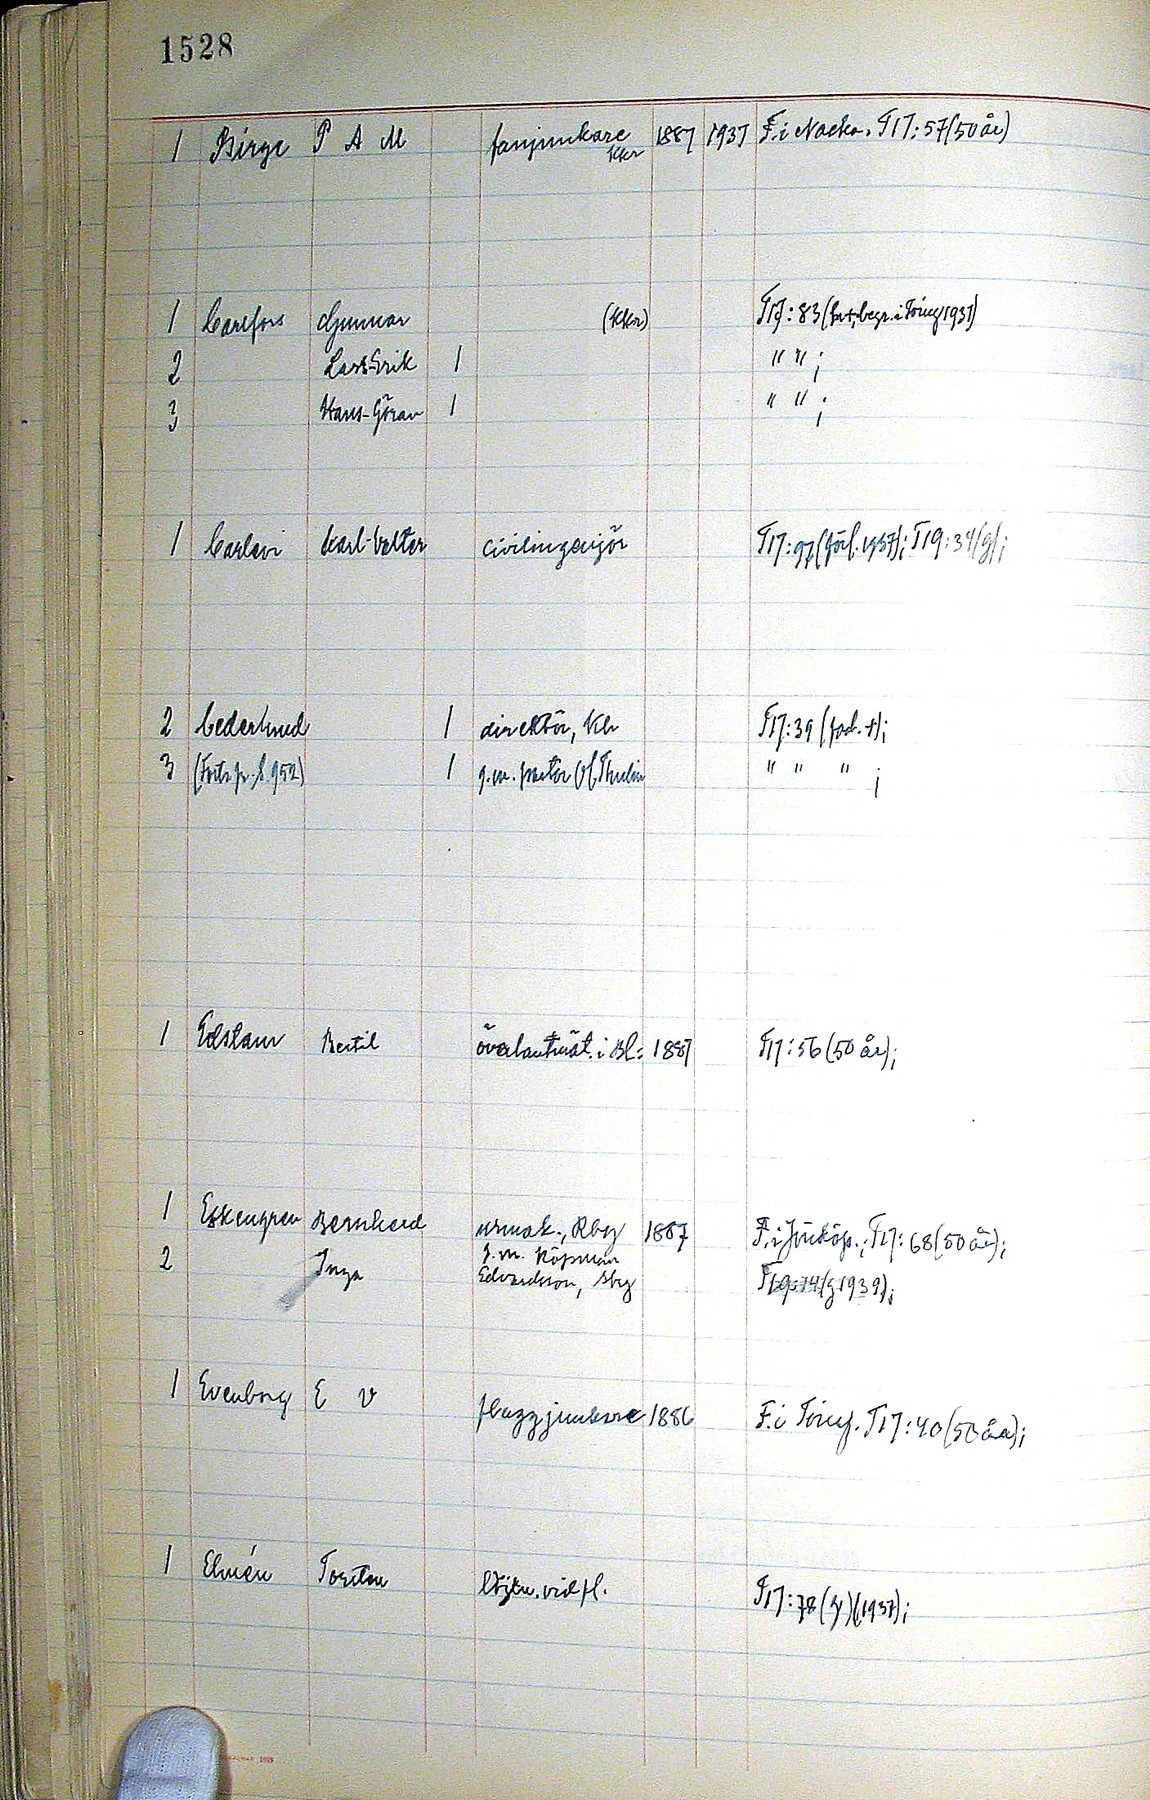 1528
1 Birge P A M fanjunkare 1887 1937 F. i Nacka. T17:57 (50 år)
Kkr
1 Carlfors Gunnar (Kkr) T17:83 (begr. i Töreg 1937)
2 Lars-Erik 1 " " ;
3 Hans-Göran 1 " " ;
1 Karl-Valter civilingenjör T17:97 (förl. 1937); T19:34 (g);
2 Cederlund 1 direktör, T17:39 (fad. †);
3 (Forts. fr. s. 952) 1 g.m. Thulin " " " ;
1 Edstam Bertil i Bl: 1887 T17:56 (50 år);
1 Eskengren Bernhard urmak., Rby 1887 F. i Jönköp.; T17:68 (50 år);
2 Inga g.m. köpman
Edvardsson, T19:14 (g 1939);
1 Evenborg E V flaggjunkare 1886 F. i T17:40 (50 åra);
1 Elmén Torsten vid fl. T17:78 (g) (1937);